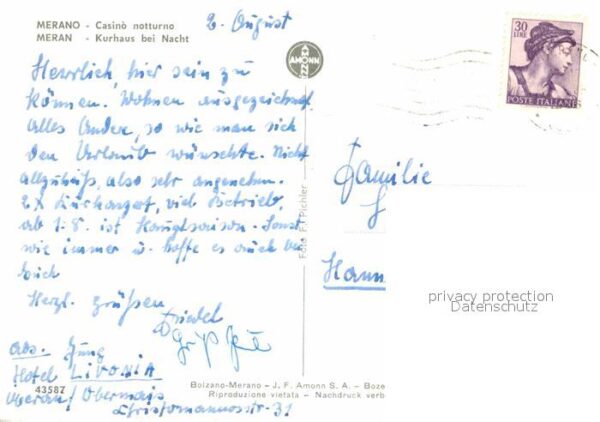 MERANO - Casinò notturno
MERAN - Kurhaus bei Nacht
2. August
AMONN
30 LIRE
POSTE ITALIANE
Herrlich, hier sein zu
können. Wohnen ausgezeichnet.
Alles Andere, so wie man sich
den Urlaub wünschte. Nicht
allzuheiß, also sehr angenehm.
2x Kurkonzert, viel Betrieb,
ab 1.8. ist Hauptsaison. Sonst
wie immer u. hoffe es auch bei
Euch
Herzl. Grüßen
Friedel
Foto F. Pichler
Familie
Hann
privacy protection
Datenschutz
Abs. Jung
Hotel LIVONIA
Meran/Obermais
Christomannosstr. 31
43587
Bolzano-Merano - J. F. Amonn S. A. - Boze
Riproduzione vietata - Nachdruck verb